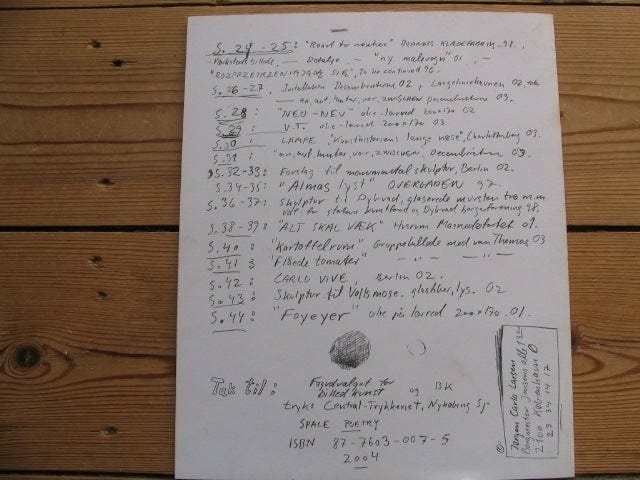 S. 24-25: "Road to nowhere" BRANDTS KLÆDEFABRIK 98.
- Detalje, - "ny malevogn" 01, -
"ROZPRZESTRZENIAJĄCA SIĘ", To be continued 96.
S. 26-27. Installation Decembristerne 02, Langeliniehaven 02,
an, auf, hinter, vor, zwischen decembristerne 03.
S. 28: "NEU-NEU" olie-lærred 200x170 02
S. 29: U.T. olie-lærred 200x170 03
S. 30: LAMPE, "Kunsthistoriens lange næse", Charlottenborg 03.
S. 31: "an, auf, hinter, vor, ZWISCHEN, Decembristerne 03
S. 32-33: Forslag til monumental skulptur, Berlin 02.
S. 34-35: "Almas lyst" OVERGADEN 97.
S. 36-37: Skulptur til Dybvad, glaserede mursten træ m.m
for statens kunstfond og Dybvad borgerforening 98.
S. 38-39: "ALT SKAL VÆK" Husum Mormedstæarket 01.
S. 40: "Kartoffelrum" Gruppebillede med van Themas 03
S. 41: "Flåede tomater" -"- -"-
S. 42: CARLO VIVE, Berlin 02.
S. 43: Skulptur til Vollsmose, glasfiber, lys. 02
S. 44: "Foyeyer" olie på lærred 200x170. 01.
Tak til: Fagudvalget for billedkunst og BK
tryk: Central-Trykkeriet, Nykøbing Sj.
SPACE POETRY
ISBN 87-7603-007-5
2004
©: Jørgen Carlo Larsen
Borgmester Jensens allé
2100 København Ø
23 34 14 17